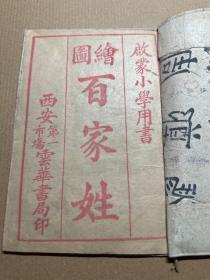 啟蒙小學用書
繪圖
百家姓
西安第一市場雲華書局印